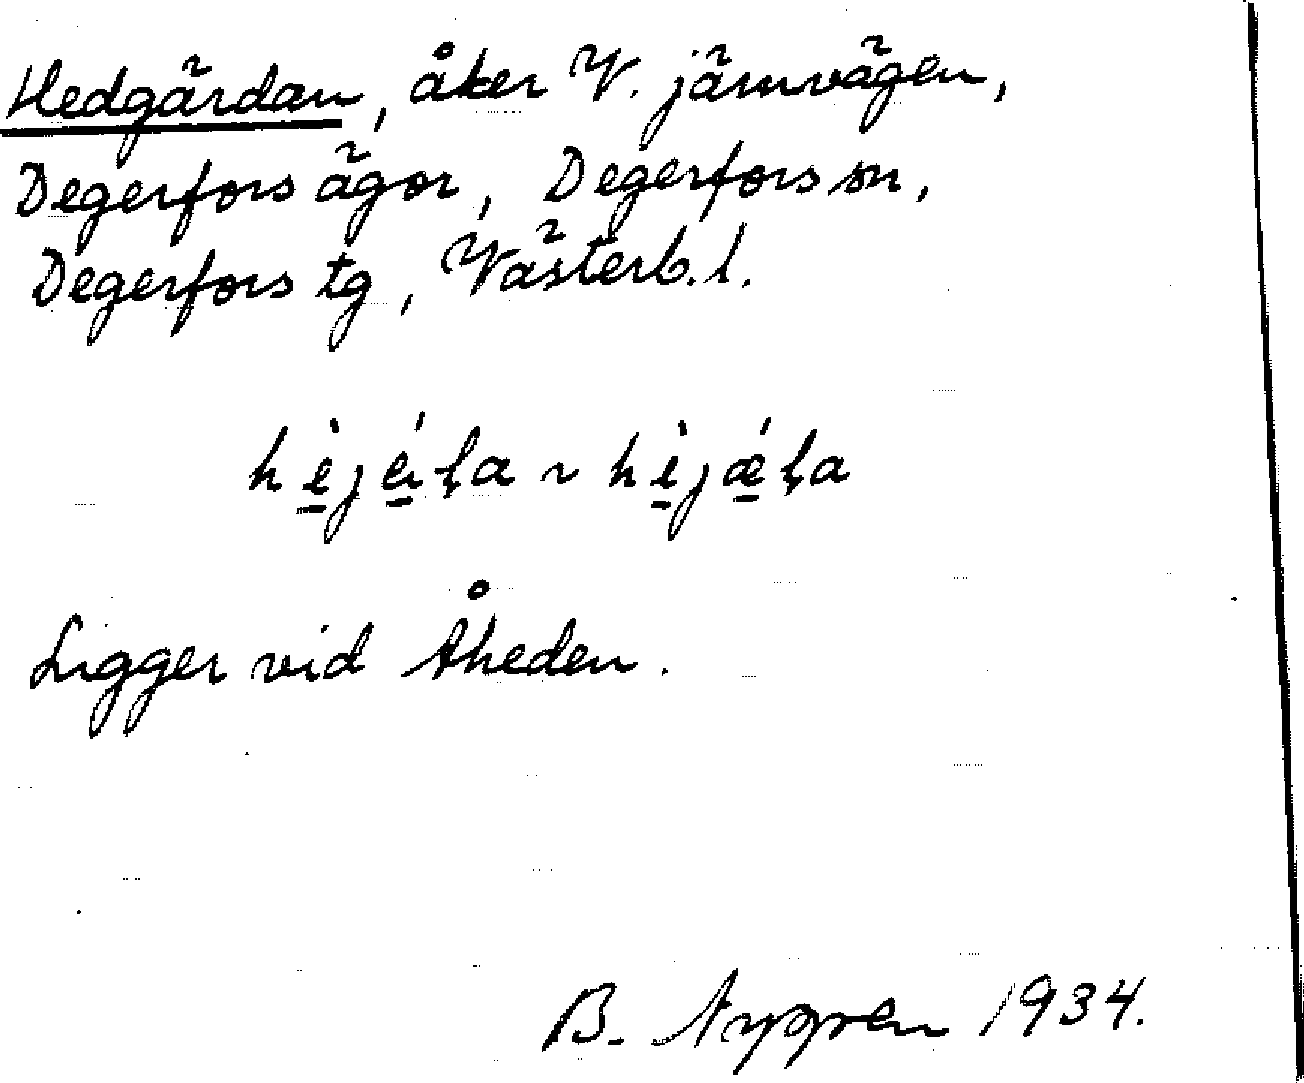 Hedgärdan, åker V. järnvägen,
Degerfors ägor, Degerfors sn,
Degerfors tg, Västerb. l.
Ligger vid Åheden.
B. 1934.